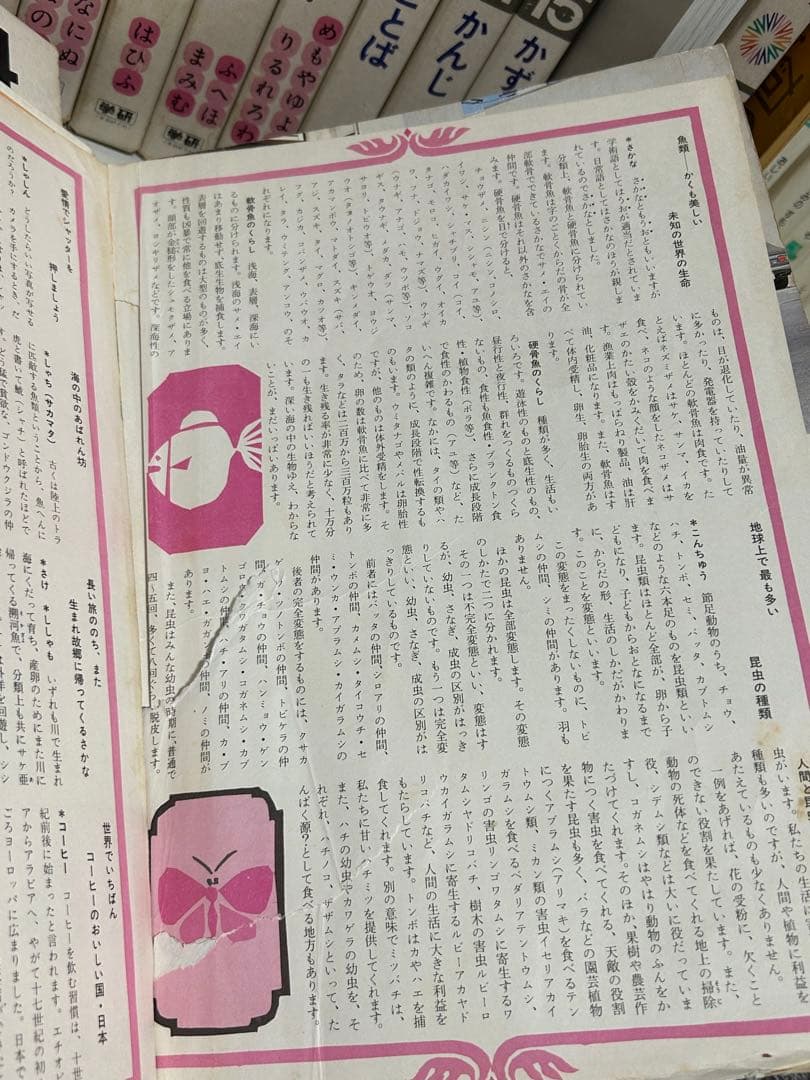 なにぬ
はひふ
学研
まみむ
ふへほ
学研
りるれろわ
めもやゆよ
ことば
かんじ
かず
15
魚類―かくも美しい
未知の世界の生命
*さかな さかなともうおともいいますが、
学術語としてはうおが適当だとされていま
す。日常語としてはさかなのほうが親しま
れているのでさかなとしました。
分類上、軟骨魚と硬骨魚に分けられてい
ます。軟骨魚は字のごとくからだの骨が全
部軟骨でできているさかなでサメ・エイの
仲間です。硬骨魚はそれ以外のさかなを含
みます。硬骨魚を目で分けると、
チョウザメ、ニシン(ニシン、コノシロ、
イワシ、サケ・イス、シシャモ、アユ等)、
ハダカイワシ、シャチブリ、コイ(コイ、
タナゴ、モロコ、ヒガイ、ウグイ、オイカ
ワ、フナ、ドジョウ、ナマズ等)、ウナギ
(ウナギ、アナゴ、ハモ、ウツボ等)、ソコ
ギス、タウナギ、メダカ、ダツ(サンマ、
サヨリ、トビウオ等)、トゲウオ、ヨウジ
ウオ(タツノオトシゴ等)、キンメダイ、
アカマンボウ、マトダイ、スズキ(サバ、
アジ、スズキ、タイ、マグロ、カツオ等)、
フグ、カジカ、コバンザメ、ウバウオ、カ
レイ、タラ、ウミテング、アンコウ、のそ
れぞれになります。
軟骨魚のくらし 浅海、表層、深海にい
るものに分けられます。浅海のサメ・エイ
はあまり移動せず、底生生物を捕食します。
表層を回遊するものは大型のものが多く、
性質も凶暴で常に他を食べる立場にありま
す。頭部が金槌形をしたシュモクザメ、ア
オザメ、ヨシキリザメなどです。深海性の
ものは、目が退化していたり、油量が異常
に多かったり、発電器を持っていたりして
います。ほとんどの軟骨魚は肉食です。た
とえばネズミザメはサケ、サンマ、イカを
食べ、ネコのような顔をしたネコザメはサ
ザエのかたい殻をかみくだいて肉を食べま
す。漁業上肉はもっぱらねり製品、油は肝
油、化粧品になります。また、軟骨魚はす
べて体内受精し、卵生、卵胎生の両方があ
ります。
硬骨魚のくらし 種類が多く、生活もい
ろいろです。遊泳性のものと底生性のもの、
昼行性と夜行性、群れをつくるものつくら
ないもの、食性も魚食性・プランクトン食
性・植物食性(ボラ等)、さらに成長段階
で食性のかわるもの(アユ等)など、た
いへん複雑です。なかには、タイの類やハ
タの類のように、成長段階で性転換するも
のもいます。ウミタナゴやメバルは卵胎性
ですが、他のものは体外受精をします。そ
のため、卵の数は軟骨魚に比べて非常に多
く、タラなどは二百万から三百万粒もあり
ます。生き残る率が非常に少なく、十万分
の一も生き残ればいいほうだと考えられて
います。深い海の中の生物ゆえ、わからな
いことが、まだいっぱいあります。
地球上で最も多い
昆虫の種類
*こんちゅう 節足動物のうち、チョウ、
ハチ、トンボ、セミ、バッタ、カブトムシ
などのような六本足のものを昆虫類といい
ます。昆虫類はほとんど全部が、卵から子
どもになり、子どもからおとなになるまで
に、からだの形、生活のしかたがかわりま
す。このことを変態といいます。
この変態をまったくしないものに、トビ
ムシの仲間、シミの仲間があります。羽も
ありません。
ほかの昆虫は全部変態します。その変態
のしかたで二つに分かれます。
その一つは不完全変態といい、変態はす
るが、幼虫、さなぎ、成虫の区別がはっき
りしていないものです。もう一つは完全変
態といい、幼虫、さなぎ、成虫の区別がは
っきりしているものです。
前者にはバッタの仲間、シロアリの仲間、
トンボの仲間、カメムシ・タイコウチ・セ
ミ・ウンカ・アブラムシ・カイガラムシの
仲間があります。
後者の完全変態をするものには、クサカ
ゲロウ・ツノトンボの仲間、トビケラの仲
間、ガ・チョウの仲間、ハンミョウ・ゲン
ゴロウ・クワガタムシ・コガネムシ・カブ
トムシの仲間、ハチ・アリの仲間、カ・ブ
ヨ・ハエ・ガガンボの仲間、ノミの仲間が
あります。
また、昆虫はみんな幼虫の時期に、普通で
四〜五回、多くて八回くらい脱皮します。
虫がいます。私たちの生活に
種類も多いのですが、人間や植物に利益を
あたえているものも少なくありません。
一例をあげれば、花の受粉に、欠くこと
のできない役割を果たしています。また、
動物の死体などを食べてくれる地上の掃除
役、シデムシ類などは大いに役だっていま
すし、コガネムシはやはり動物のふんをか
たづけてくれます。そのほか、果樹や農芸作
物につく害虫を食べてくれる、天敵の役割
を果たす昆虫も多く、バラなどの園芸植物
につくアブラムシ(アリマキ)を食べるテン
トウムシ類、ミカン類の害虫イセリアカイ
ガラムシを食べるベダリアテントウムシ、
リンゴの害虫リンゴワタムシに寄生するワ
タムシヤドリコバチ、樹木の害虫ルビーロ
ウカイガラムシに寄生するルビーアカヤド
リコバチなど、人間の生活に大きな利益を
もたらしています。トンボはカやハエを捕
食してくれます。別の意味でミツバチは、
私たちに甘いハチミツを提供してくれます。
また、ハチの幼虫やカワゲラの幼虫を、そ
れぞれ、ハチノコ、ザザムシといって、た
んぱく源?として食べる地方もあります。
愛情でシャッターを
押しましょう
*しゃしん どうしたらいい写真が写せる
のだろうか? カメラを手にするとき、た
海の中のあばれん坊
*しゃち(サカマタ) 古くは陸上のトラ
に匹敵する魚類ということから、魚へんに
虎と書いて鯱(シャチ)と呼ばれたほどで
す、どう猛で貪欲な、ゴンドウクジラの仲
長い旅ののち、また
生まれ故郷に帰ってくるさかな
*さけ *ししゃも いずれも川で生まれ
海にくだって育ち、産卵のためにまた川に
帰ってくる溯河魚で、分類上も共にサケ亜
世界でいちばん
コーヒーのおいしい国・日本
*コーヒー コーヒーを飲む習慣は、十世
紀前後に始まったと言われます。エチオピ
アからアラビアへ、やがて十七世紀の初
ごろヨーロッパに広まりました。日本で